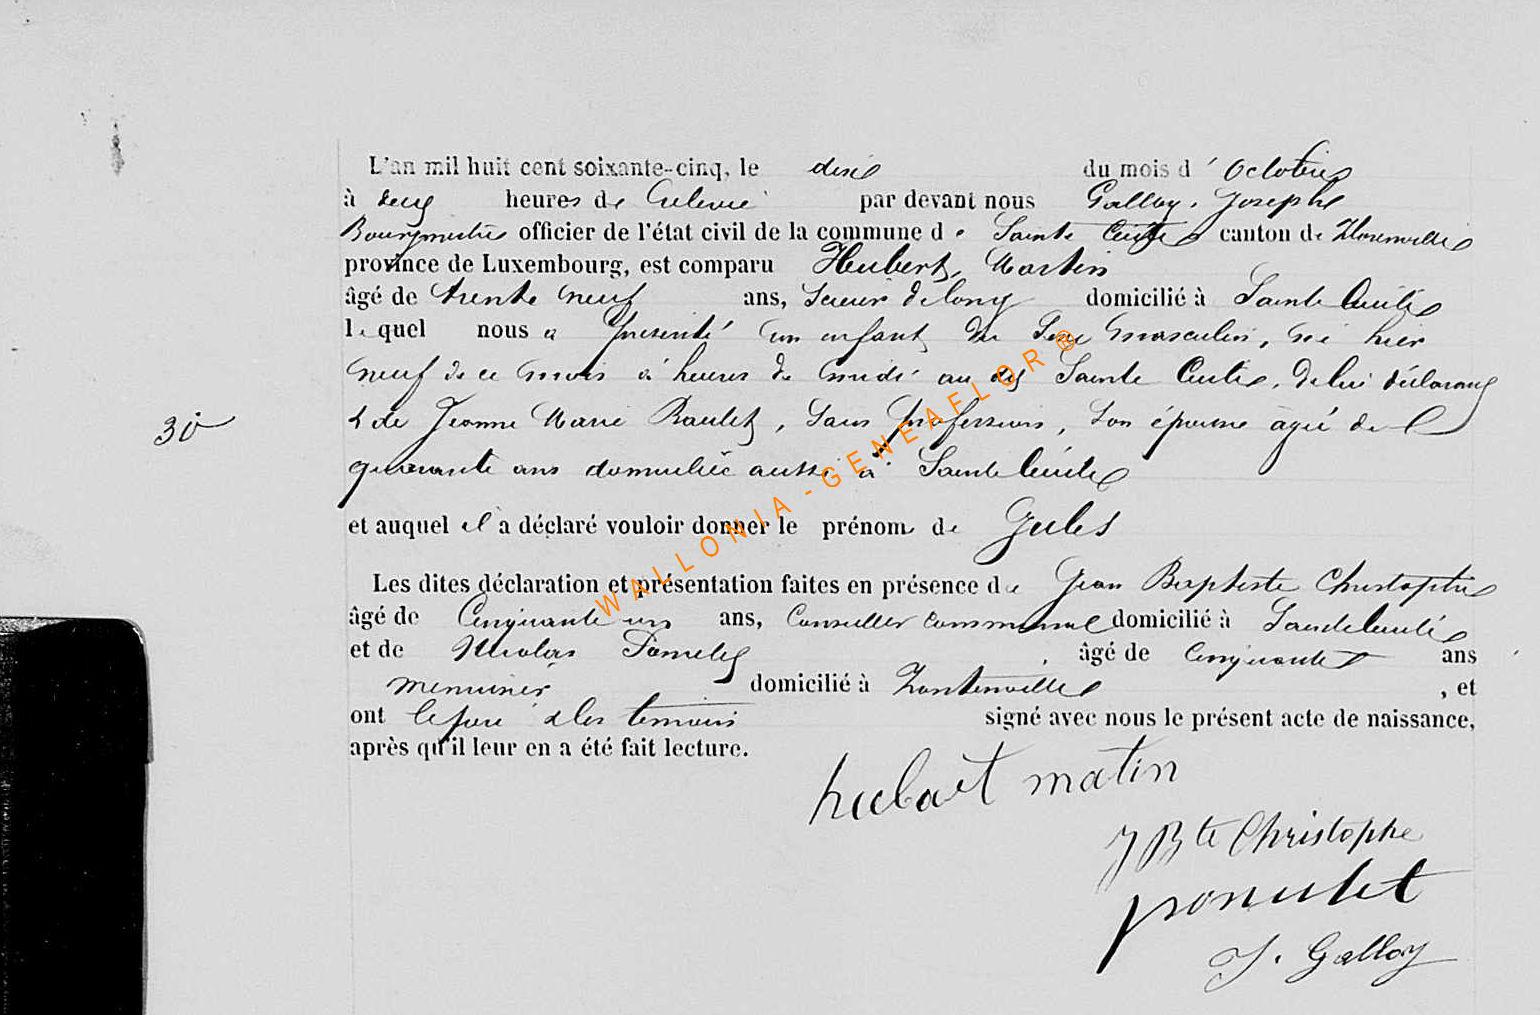 L'an mil huit cent soixante-cinq, le dix du mois d' Octobre
à deux heures de par devant nous Galloy, Joseph
Bourgmestre officier de l'état civil de la commune de Sainte Cécile canton de Florenville
province de Luxembourg, est comparu Hubert, Martin
âgé de trente neuf ans, Scieur de long domicilié à Sainte Cécile
lequel nous a présenté un enfant du sexe masculin, né hier
neuf de ce mois à heures de midi au dit Sainte Cécile, de lui déclarant
& de Jeanne Marie Raulet, sans profession, son épouse agée de
quarante ans domiciliée aussi à Sainte Cécile
30
et auquel il a déclaré vouloir donner le prénom de Jules
Les dites déclaration et présentation faites en présence de Jean Baptiste Christophe
âgé de Cinquante un ans, Conseiller communal domicilié à Sainte Cécile
et de Nicolas âgé de Cinquante ans
menuisier domicilié à , et
ont le père & les témoins signé avec nous le présent acte de naissance,
après qu'il leur en a été fait lecture.
hubart matin
J Bte Christophe
J. Galloy
WALLONIA-GENEAFLOR®